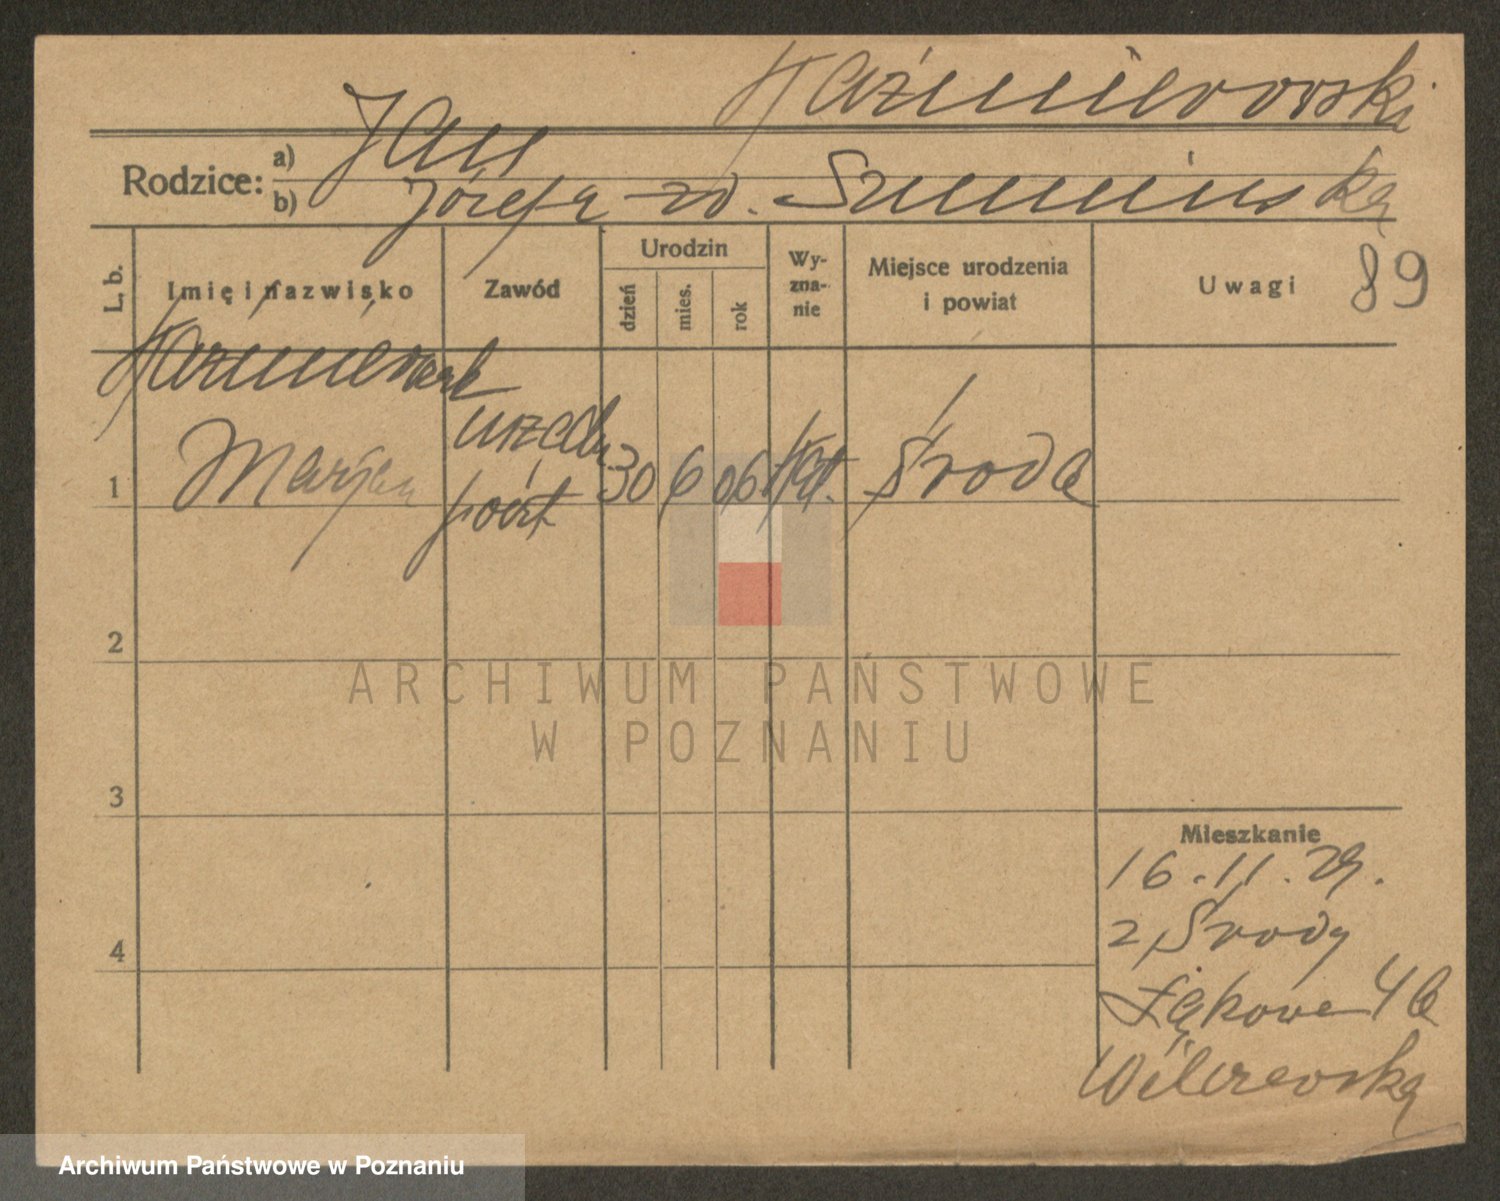 Kaźmierowski
Rodzice:
a) Jan
b) Józefa zd. Szumińska
L. b.
Imię i nazwisko
Zawód
Urodzin
dzień
mies.
rok
Wy-
zna-
nie
Miejsce urodzenia
i powiat
Uwagi
89
Kaźmierowski
1 Marjan
urzędn.
poczt
30 6 06 kat. Środa
2
3
4
Mieszkanie
16.11.29.
z Środy
Łąkowa 4b
ARCHIWUM PAŃSTWOWE
W POZNANIU
Archiwum Państwowe w Poznaniu